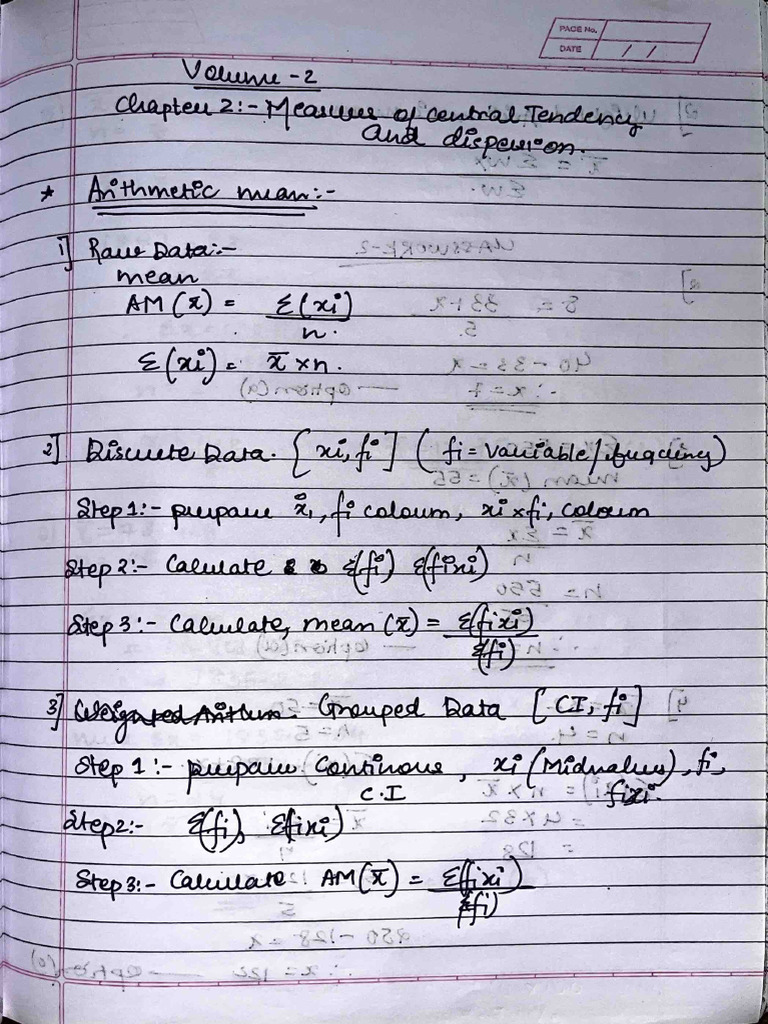 PAGE No.
DATE / /
Volume - 2
Chapter 2:- Measures of central Tendency
and dispersion.
* Arithmetic mean:-
1] Raw Data:-
mean
AM (x̄) = Σ(xi)
n.
Σ(xi) = x̄ × n.
2] Discrete Data. [xi, fi] (fi = Variable/frequency)
Step 1:- prepare xi, fi coloum, xi × fi, coloum
Step 2:- Calculate Σ(fi) Σ(fixi)
Step 3:- Calculate, mean (x̄) = Σ(fixi)
Σ(fi)
3] Weighted Arithm. Grouped Data [CI, fi]
Step 1:- prepare Continous, xi (Midvalues), fi,
C.I fixi.
Step2:- Σ(fi), Σ(fixi)
Step 3:- Calculate AM(x̄) = Σ(fixi)
Σ(fi)